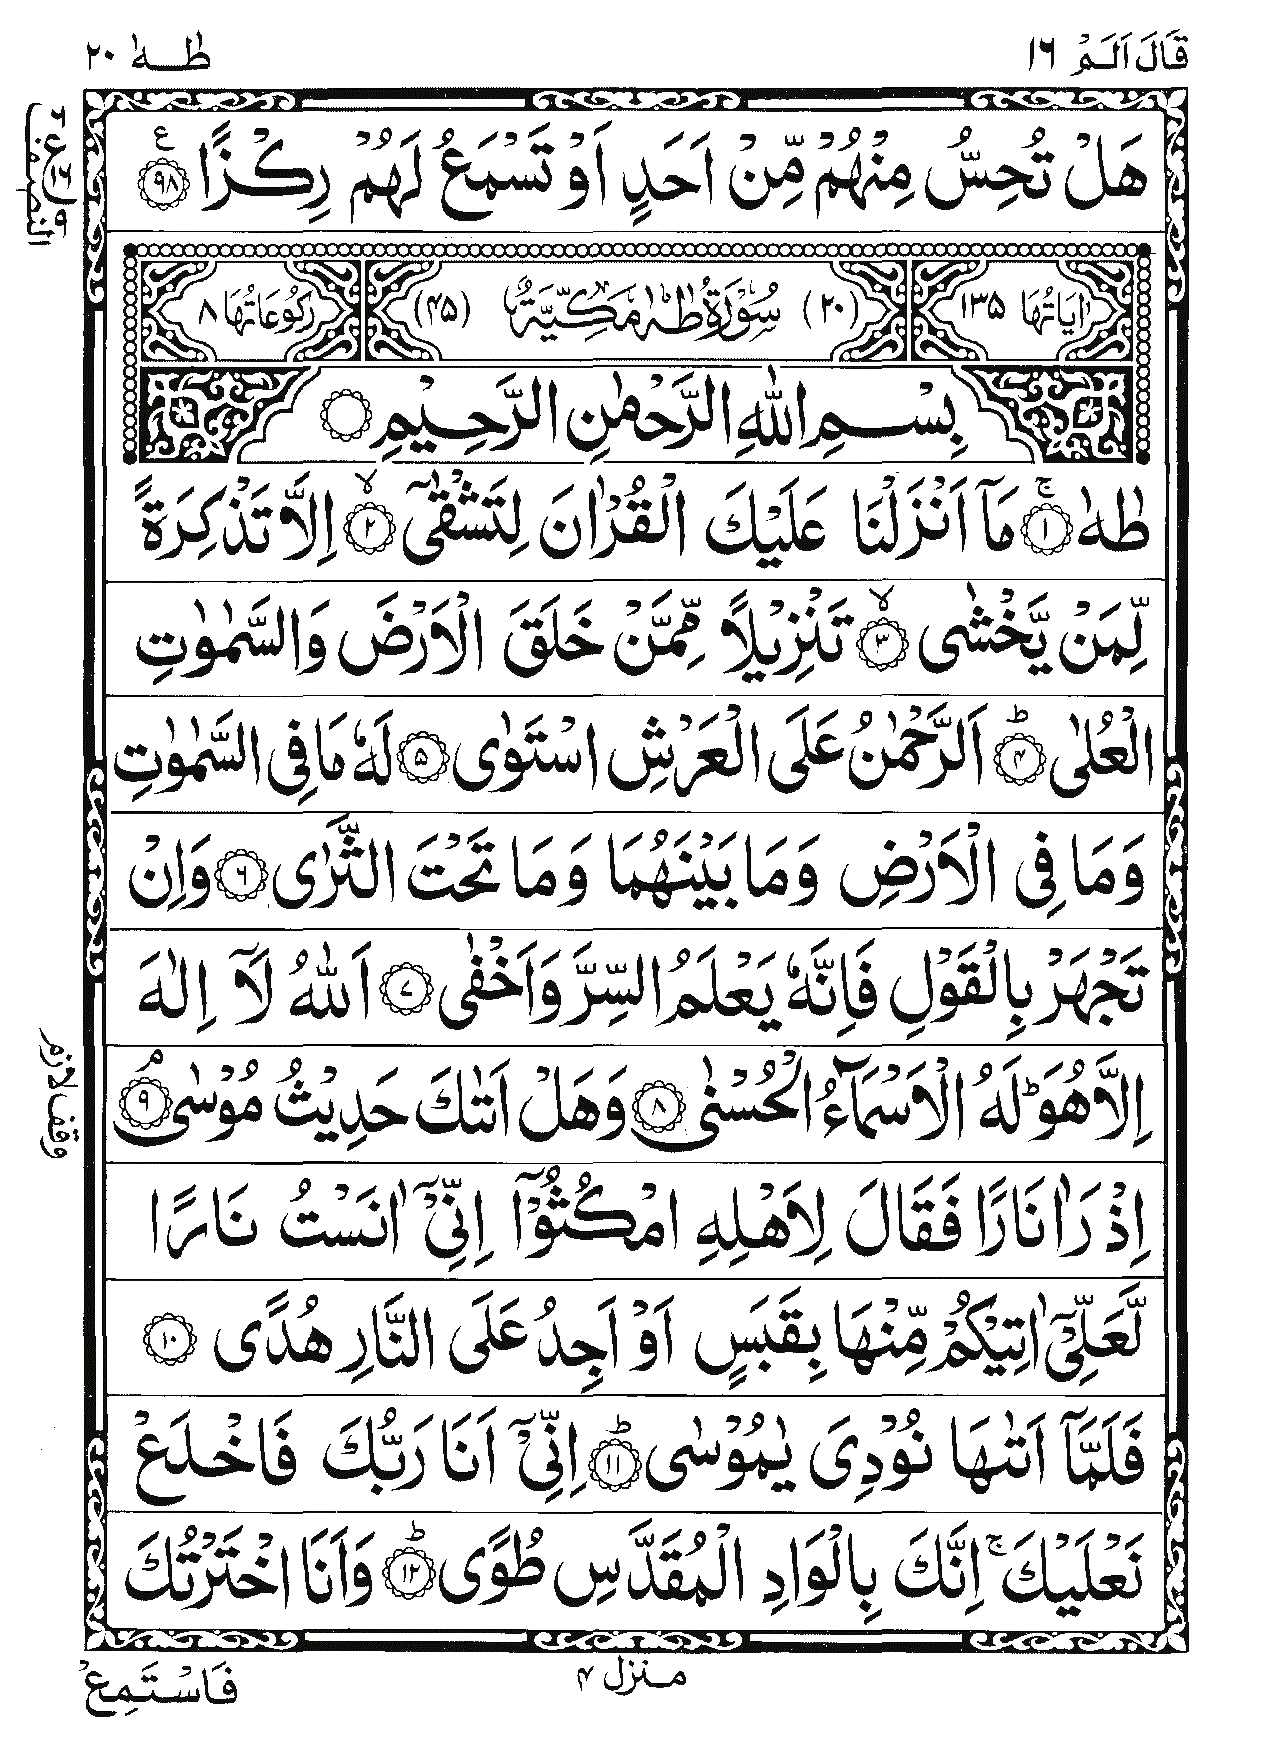 قَالَ اَلَمْ ١٦
طٰهٰ ٢٠
هَلْ تُحِسُّ مِنْهُمْ مِّنْ اَحَدٍ اَوْ تَسْمَعُ لَهُمْ رِكْزًا ﴿٩٨﴾ ع
ع ٦ ١٦ ٩
اٰيَاتُهَا ١٣٥ (٢٠) سُوْرَةُ طٰهٰ مَكِّيَّةٌ (٤٥) رُكُوْعَاتُهَا ٨
بِسْمِ اللّٰهِ الرَّحْمٰنِ الرَّحِيْمِ
طٰهٰ ﴿١﴾ۚ مَآ اَنْزَلْنَا عَلَيْكَ الْقُرْاٰنَ لِتَشْقٰٓى ﴿٢﴾ۙ اِلَّا تَذْكِرَةً
لِّمَنْ يَّخْشٰى ﴿٣﴾ۙ تَنْزِيْلًا مِّمَّنْ خَلَقَ الْاَرْضَ وَالسَّمٰوٰتِ
الْعُلٰى ﴿٤﴾ؕ اَلرَّحْمٰنُ عَلَى الْعَرْشِ اسْتَوٰى ﴿٥﴾ لَهٗ مَا فِى السَّمٰوٰتِ
وَمَا فِى الْاَرْضِ وَمَا بَيْنَهُمَا وَمَا تَحْتَ الثَّرٰى ﴿٦﴾ وَاِنْ
تَجْهَرْ بِالْقَوْلِ فَاِنَّهٗ يَعْلَمُ السِّرَّ وَاَخْفٰى ﴿٧﴾ اَللّٰهُ لَآ اِلٰهَ
اِلَّا هُوَؕ لَهُ الْاَسْمَآءُ الْحُسْنٰى ﴿٨﴾ وَهَلْ اَتٰىكَ حَدِيْثُ مُوْسٰى ﴿٩﴾ۘ
وقف لازم
اِذْ رَاٰ نَارًا فَقَالَ لِاَهْلِهِ امْكُثُوْٓا اِنِّىْٓ اٰنَسْتُ نَارًا
لَّعَلِّىْٓ اٰتِيْكُمْ مِّنْهَا بِقَبَسٍ اَوْ اَجِدُ عَلَى النَّارِ هُدًى ﴿١٠﴾
فَلَمَّآ اَتٰىهَا نُوْدِىَ يٰمُوْسٰى ﴿١١﴾ؕ اِنِّىْٓ اَنَا رَبُّكَ فَاخْلَعْ
نَعْلَيْكَۚ اِنَّكَ بِالْوَادِ الْمُقَدَّسِ طُوًى ﴿١٢﴾ؕ وَاَنَا اخْتَرْتُكَ
منزل ٤
فَاسْتَمِعْ